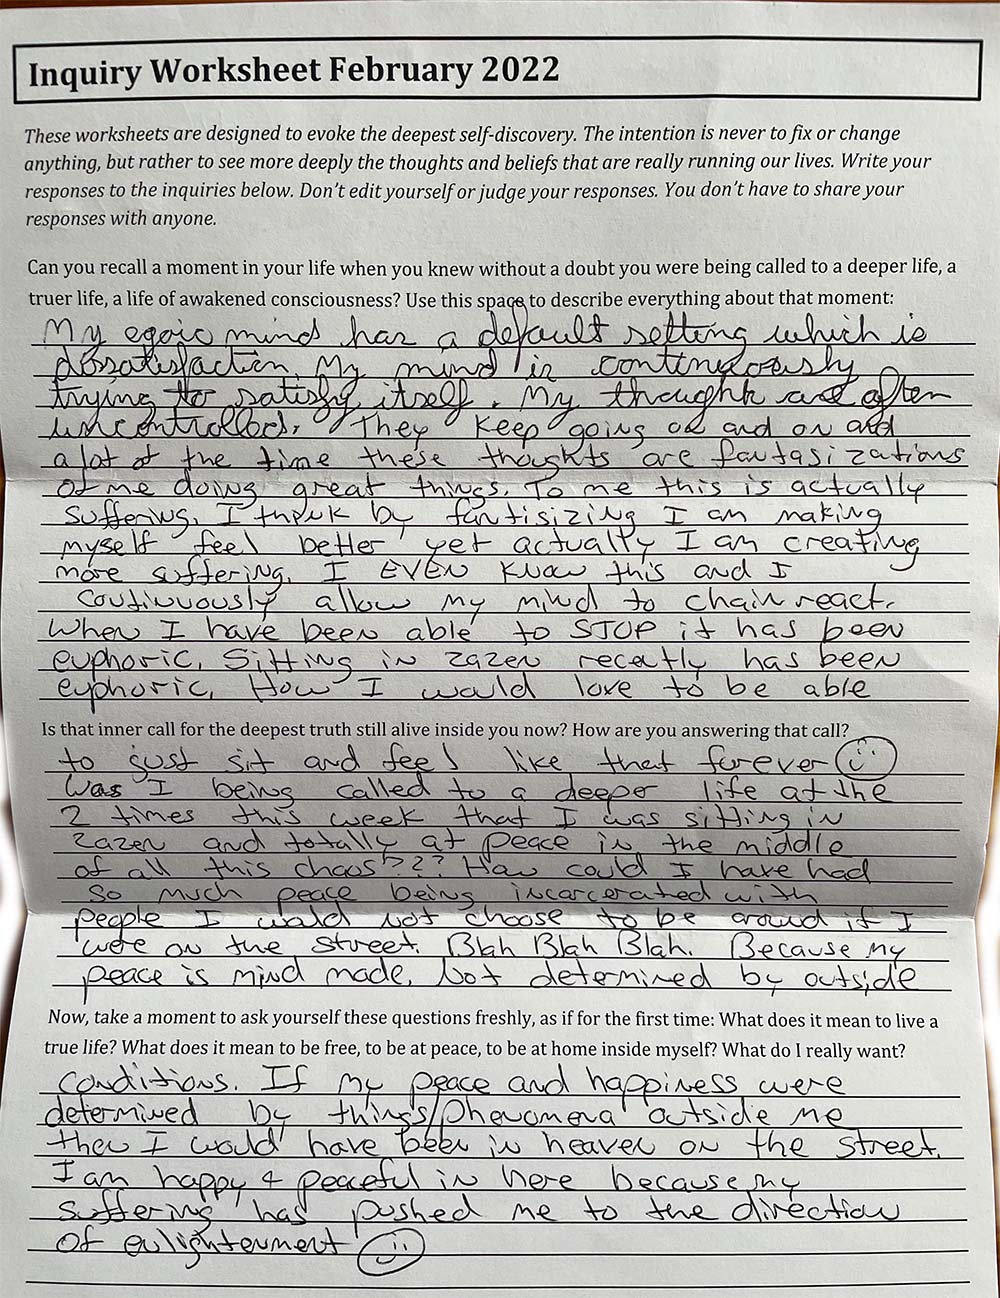 Inquiry Worksheet February 2022
These worksheets are designed to evoke the deepest self-discovery. The intention is never to fix or change
anything, but rather to see more deeply the thoughts and beliefs that are really running our lives. Write your
responses to the inquiries below. Don't edit yourself or judge your responses. You don't have to share your
responses with anyone.
Can you recall a moment in your life when you knew without a doubt you were being called to a deeper life, a
truer life, a life of awakened consciousness? Use this space to describe everything about that moment:
My egoic mind has a default setting which is
dissatisfaction. My mind is continuously
trying to satisfy itself. My thoughts are often
uncontrolled. They keep going on and on and
a lot of the time these thoughts are fantasizations
of me doing great things. To me this is actually
suffering. I think by fantisizing I am making
myself feel better yet actually I am creating
more suffering. I EVEN know this and I
continuously allow my mind to chain react.
When I have been able to STOP it has been
euphoric. Sitting in zazen recently has been
euphoric. How I would love to be able
Is that inner call for the deepest truth still alive inside you now? How are you answering that call?
to just sit and feel like that forever
Was I being called to a deeper life at the
2 times this week that I was sitting in
zazen and totally at peace in the middle
of all this chaos??? How could I have had
so much peace being incarcerated with
people I would not choose to be around if I
were on the street. Blah Blah Blah. Because my
peace is mind made. Not determined by outside
Now, take a moment to ask yourself these questions freshly, as if for the first time: What does it mean to live a
true life? What does it mean to be free, to be at peace, to be at home inside myself? What do I really want?
conditions. If my peace and happiness were
determined by things/phenomena outside me
then I would have been in heaven on the street.
I am happy & peaceful in here because my
suffering has pushed me to the direction
of enlightenment